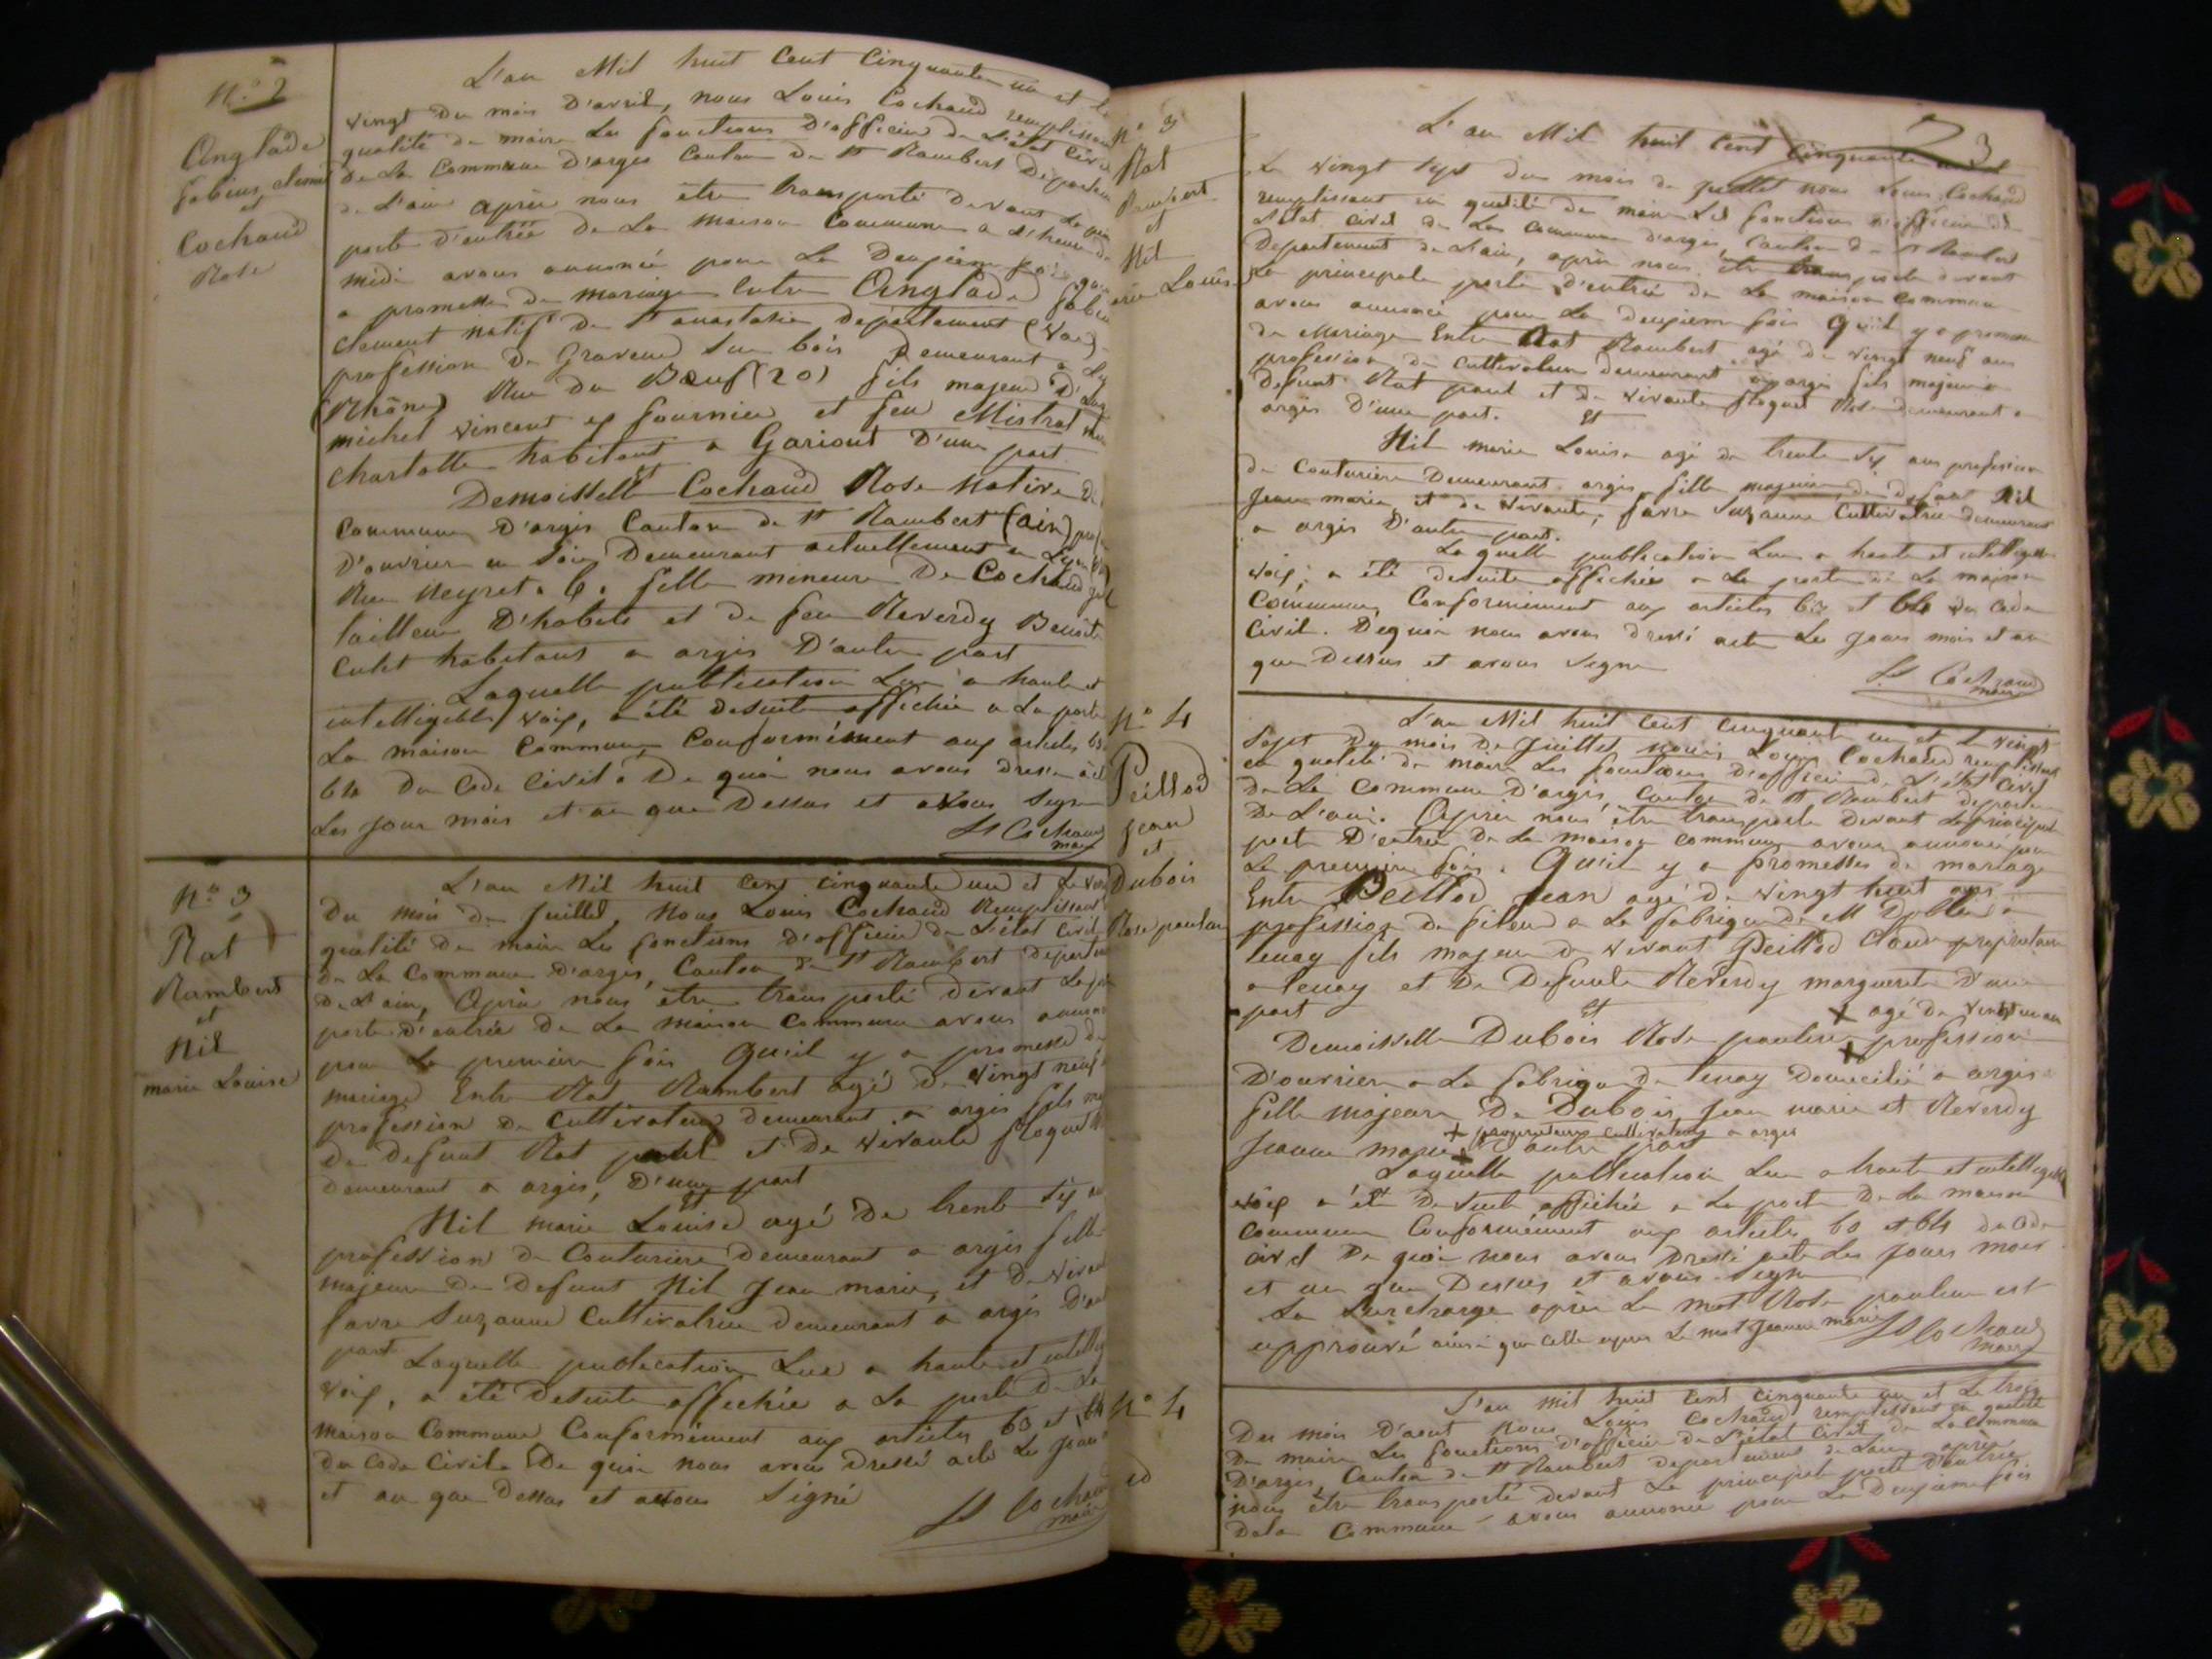 N° 2
Anglade
fabius clement
et
Cochaud
Rose
L'an Mil huit Cent Cinquante un et le
vingt du mois D'avril, nous Louis Cochaud remplissant
qualité de maire Les fonctions D'officier de L'état Civil
De La Commune D'argis Canton De St Rambert Departem
De L'ain après nous être transporté Devant La prin
porte D'entrée De La maison Commune a L'heure de
midi avons annoncé pour La Deuxieme fois qu
a promesse De mariage Entre Anglade fabiu
clement natif De Ste anastasie Departement (Var)
profession De Graveur Sur bois Demeurant a Ly
(Rhône) Rue Du Bœuf (20) fils majeur D'
michel vincent ex fournier et feu Mistral
charlotte habitant a Gariout D'une part
et
Demoisselle Cochaud Rose Native De
Commune D'argis Canton De St Rambert (ain) prof
D'ouvriere en Soie Demeurant actuellement a Lyon
Rue Neyret. 6. fille mineure De Cochaud
tailleur D'habits et De feu Reverdy Benoite
habitant a argis D'autre part
Laquelle publication Lue a haute et
intelligible voix, a été Desuite affichée a La porte
La maison Commune Conformément aux articles 63
64 Du Code Civil. De quoi nous avons Dressé act
Les jour mois et an que Dessus et avons Signe
Ls Cochaud
maire
N° 3
Rat
Rambert
et
Nil
marie Louise
L'an Mil huit Cent Cinquante un et Le vin
Du mois De Juillet, Nous Louis Cochaud Remplissant
qualité De maire Les fonctions D'officier De L'état Civil
De La Commune D'argis, Canton De St Rambert Departem
De L'ain, Après nous être transporté Devant La pri
porte D'entrée De La maison Commune avons annon
pour La premiere fois Qu'il y a promesse De
mariage Entre Rat Rambert agé De vingt neuf
profession De Cultivateur Demeurant a argis fils ma
De Defunt Rat paul et De vivante floquet
Demeurant a argis, D'une part
et
Nil marie Louise agé De trente six an
profession De Couturiere Demeurant a argis fille
majeure De Defunt Nil Jean marie, et De vivan
favre Suzanne Cultivatrice Demeurant a argis D'au
part
Laquelle publication Lue a haute et intellig
voix, a été Desuite affichée a La porte De La
maison Commune Conformément aux articles 63 et 64
Du Code Civil. De quoi nous avons Dressé acte Le Jour
et an que Dessus et avons Signé
Ls Cochaud
maire
N° 3
Rat
Rambert
et
Nil
marie Louise
73
L'an Mil huit Cent Cinquante un et
Le vingt Sept du mois De juillet nous Louis Cochaud
remplissant en qualité De maire Les fonctions D'officier De
L'état Civil De La Commune D'argis, Canton De St Rambert
Departement De L'ain, après nous être transporté devant
La principale porte D'entrée De La maison Commune
avons annoncé pour La Deuxieme fois Qu'il y a promesse
De Mariage Entre Rat Rambert agé De vingt neuf ans
profession De Cultivateur Demeurant a argis fils majeur De
Defunt Rat paul et De vivante floquet Rose Demeurant a
argis D'une part.
et
Nil marie Louise agé De trente Six ans profession
De Couturiere Demeurant argis, fille majeure De Defunt Nil
Jean marie, et De vivante, favre Suzanne Cultivatrice Demeurant
a argis D'autre part.
Laquelle publication Lue a haute et intelligible
voix, a été Desuite affichée a La porte De La maison
Commune, Conformément aux articles 63 et 64 Du Code
Civil. Dequoi nous avons Dressé acte Les Jours mois et an
que Dessus et avons Signe
Ls Cochaud
maire
N° 4
Peillod
Jean
et
Dubois
Rose pauline
L'an Mil huit Cent Cinquante un et Le vingt
Sept Du mois De Juillet nous Louis Cochaud remplissant
en qualité De maire Les fonctions D'officier De L'état Civil
De La Commune D'argis, Canton De St Rambert departem
De L'ain. Après nous être transporté Devant La principal
porte D'entrée De La maison Commune avons annoncé pour
La premiere fois. Qu'il y a promesses De mariage
Entre Peillod Jean agé De vingt huit ans
profession De fileur a La fabrique De M
tenay fils majeur De vivant Peillod Claude proprietaire
a tenay et De Defunte Reverdy marguerite D'une
part
et
+ agé De vingt un an
Demoisselle Dubois Rose pauline + profession
D'ouvriere a La fabrique De tenay Domicilié a argis
fille majeure De Dubois Jean marie et Reverdy
+ proprietaires cultivateurs a argis
Jeanne marie + D'autre part
Laquelle publication Lue a haute et intelligible
voix a été De Suite affichée a La porte De La maison
Commune Conformément aux articles 63 et 64 du Code
civil De quoi nous avons Dressé acte Les jours mois
et an que Dessus et avons Signe
La Surcharge après Le mot Rose pauline est
approuvé ainsi que celle après Le mot Jeanne marie
Ls Cochaud
maire
N° 4
id
L'an mil huit Cent Cinquante un et Le trois
Du mois D'aout Nous Louis Cochaud remplissant en qualité
De maire Les fonctions D'officier De L'état Civil De La Commune
D'argis, Canton De St Rambert Departement De L'ain, après
nous être transporté devant La principal porte D'entrée
Dela Commune avons annoncé pour La Deuxieme fois